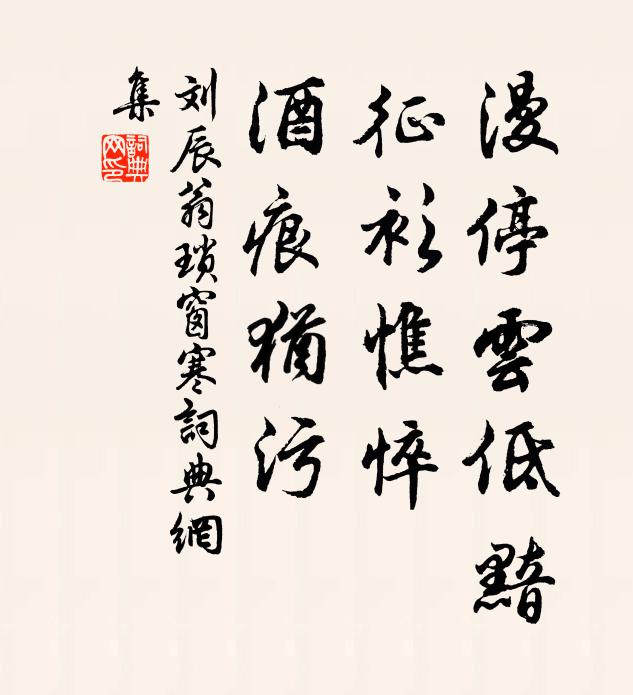 漫停雲低黯
征衫憔悴
酒痕猶污
刘辰翁瑣窗寒詞典網
集
詞典
网印